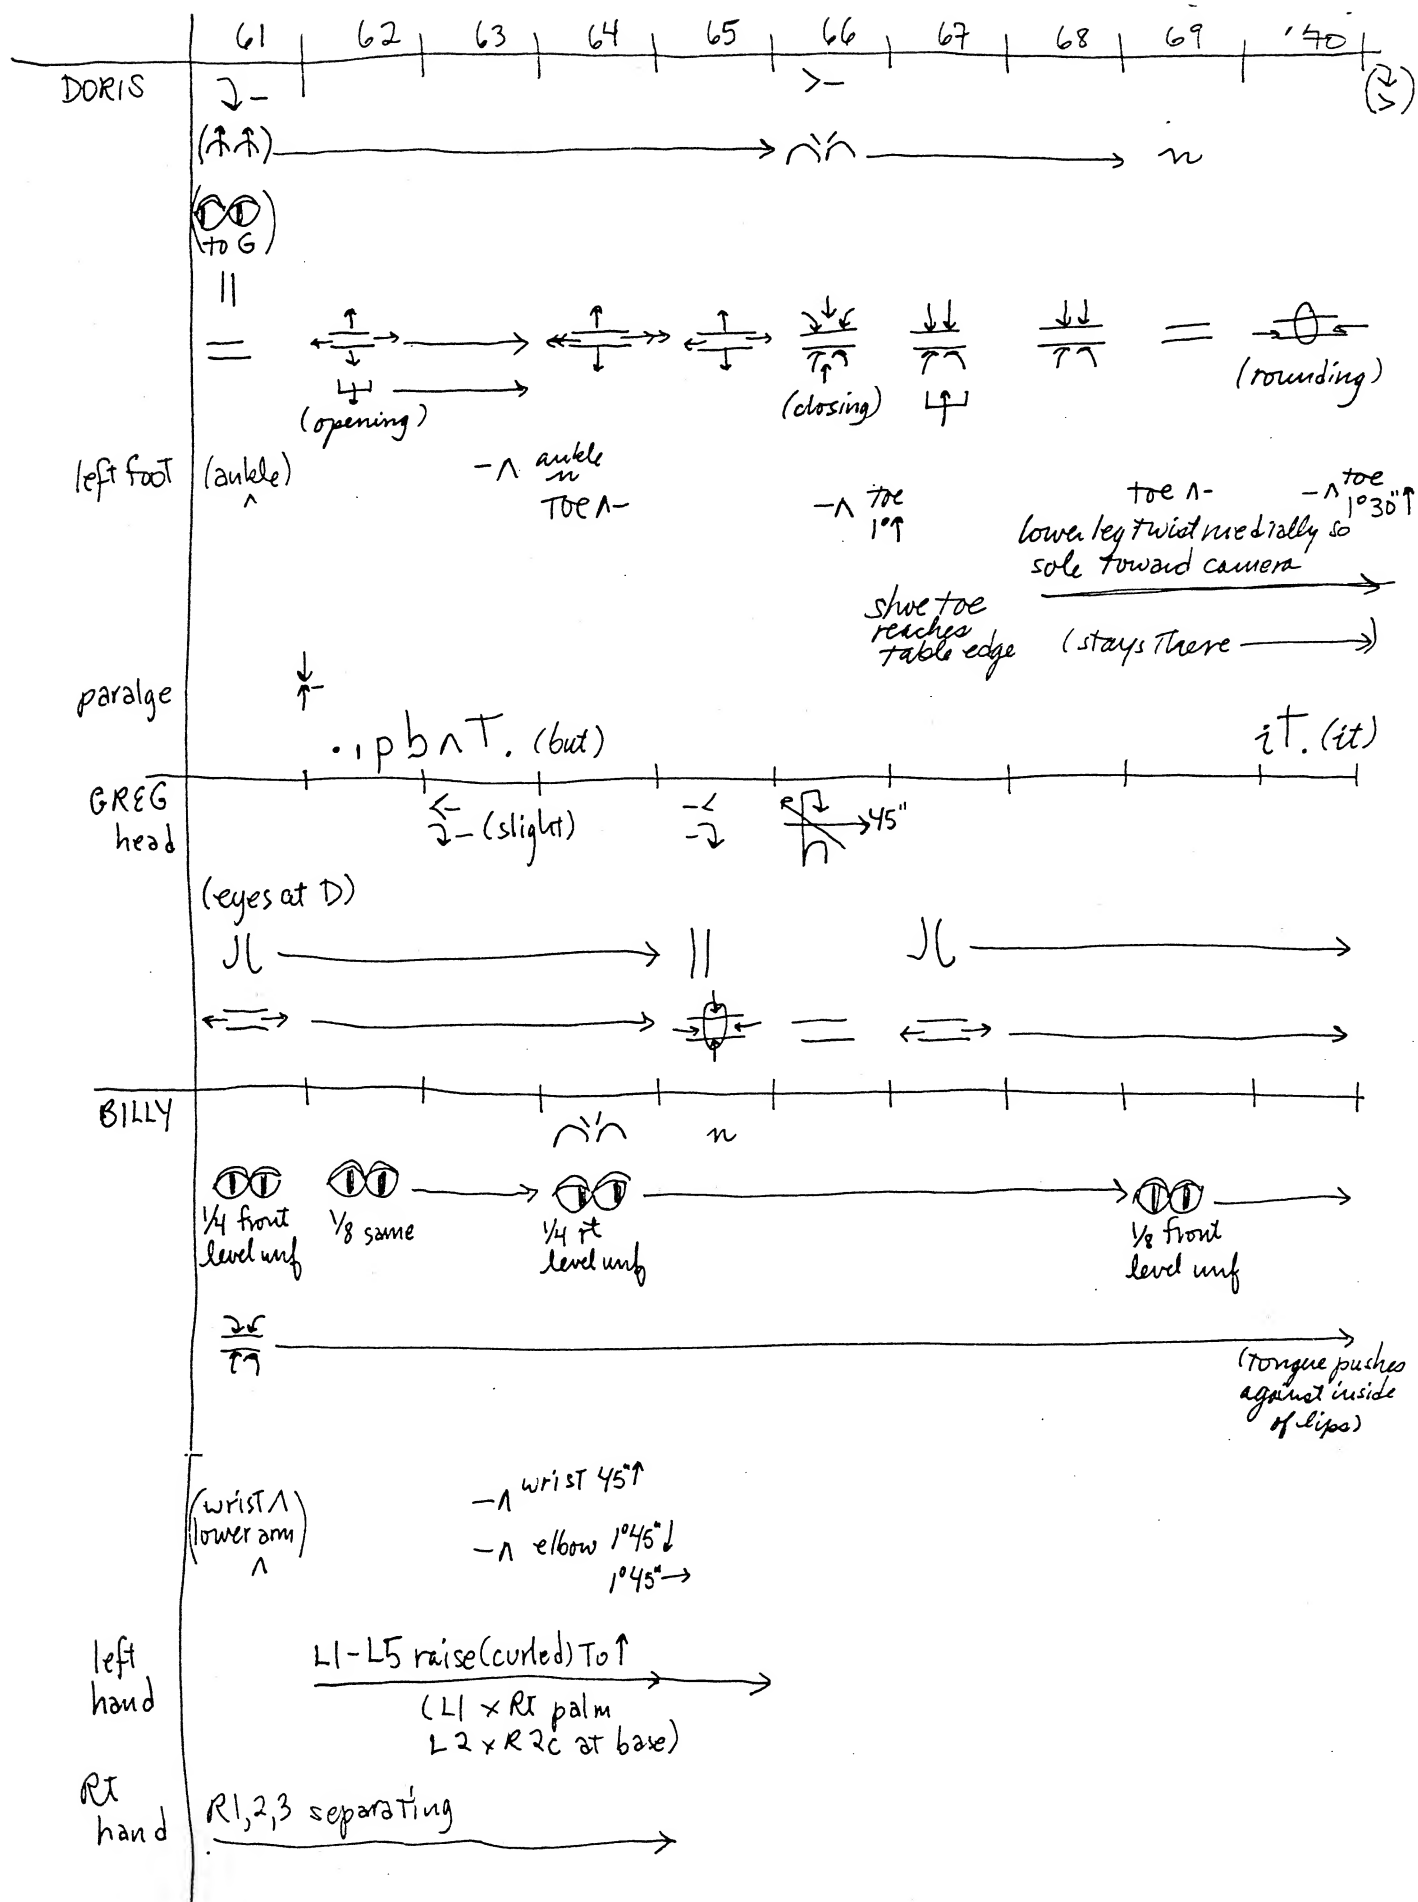 61 62 63 64 65 66 67 68 69 '70
DORIS
(to G)
(opening)
(closing)
(rounding)
left foot
(ankle)
ankle
n
TOE ʌ-
-ʌ toe
1°↑
toe ʌ-
-ʌ toe
1°30"↑
lower leg twist medially so
sole toward camera
shoe toe
reaches
table edge
(stays there →)
paralge
(but)
iT. (it)
GREG
head
(slight)
45"
(eyes at D)
BILLY
n
1/4 front
level unf
1/8 same
1/4 rt
level unf
1/8 front
level unf
(tongue pushes
against inside
of lips)
(wrist ʌ
lower arm
ʌ)
-ʌ wrist 45"↑
-ʌ elbow 1°45"↓
1°45"→
left
hand
L1-L5 raise (curled) To ↑
(L1 x Rt palm
L2 x R2c at base)
Rt
hand
R1,2,3 separating